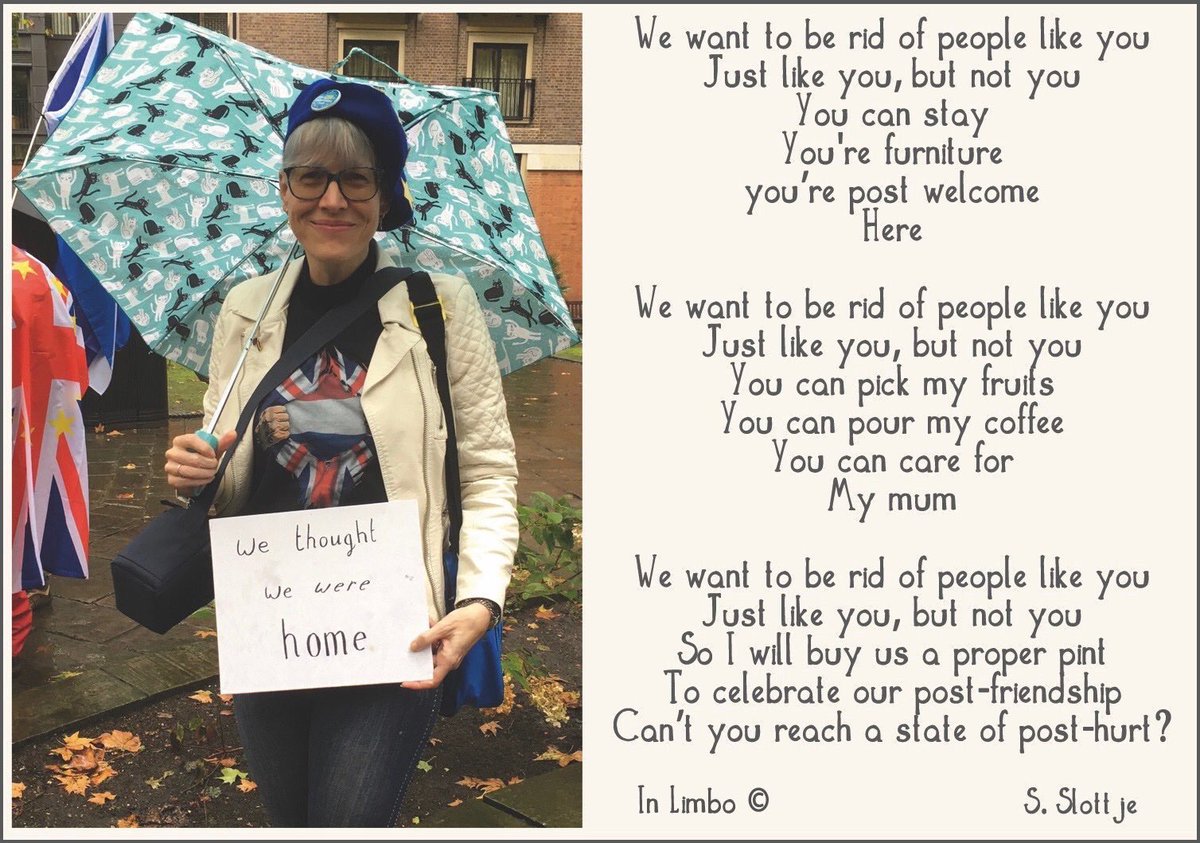 We thought
we were
home
We want to be rid of people like you
Just like you, but not you
You can stay
You're furniture
you're post welcome
Here
We want to be rid of people like you
Just like you, but not you
You can pick my fruits
You can pour my coffee
You can care for
My mum
We want to be rid of people like you
Just like you, but not you
So I will buy us a proper pint
To celebrate our post-friendship
Can't you reach a state of post-hurt?
In Limbo ©
S. Slottje